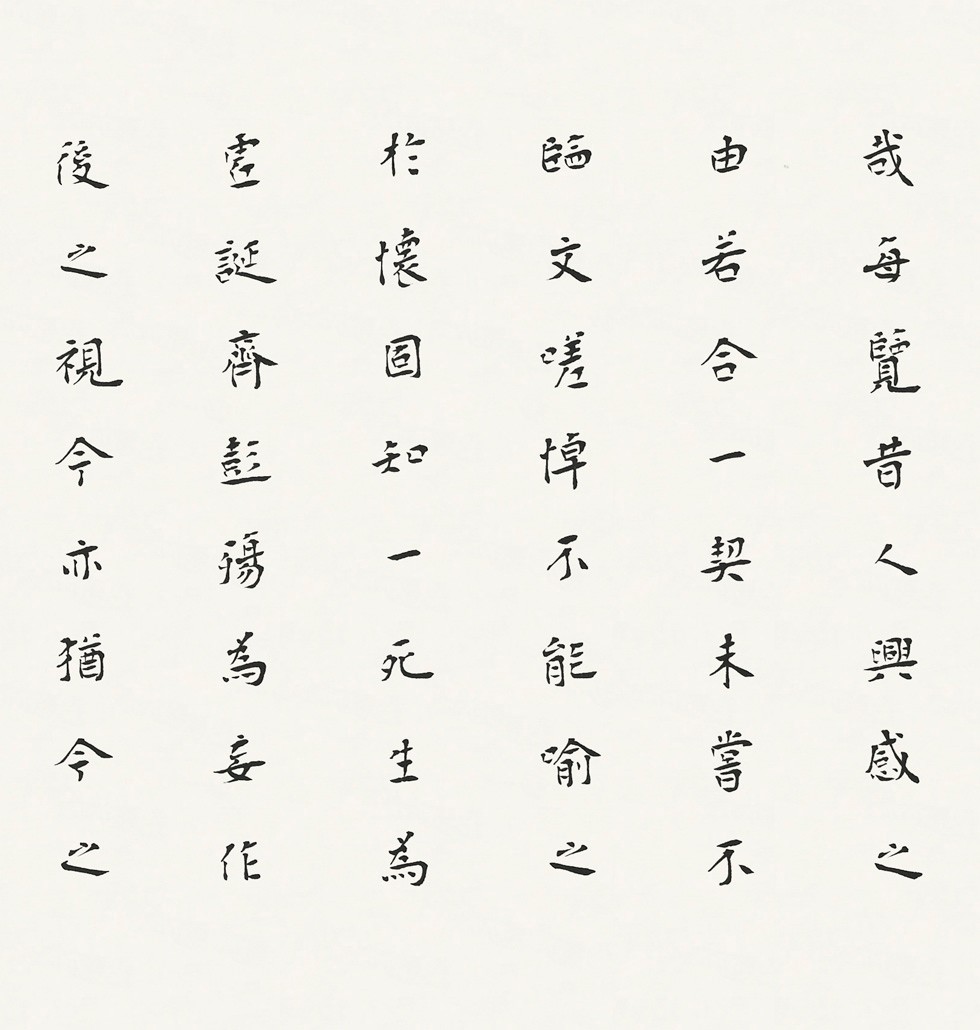 哉每覽昔人興感之
由若合一契未嘗不
臨文嗟悼不能喻之
於懷固知一死生為
虛誕齊彭殤為妄作
後之視今亦猶今之